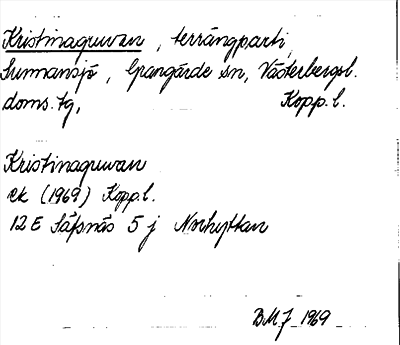 Kristinagruvan, terrängparti,
Srmansjö, Grangärde sn, Västerbergsl.
doms.tg, Kopp.l.
Kristinagruvan
ek (1969) Kopp.l.
12E Säfsnäs 5 j Norhyttan
BMJ 1969